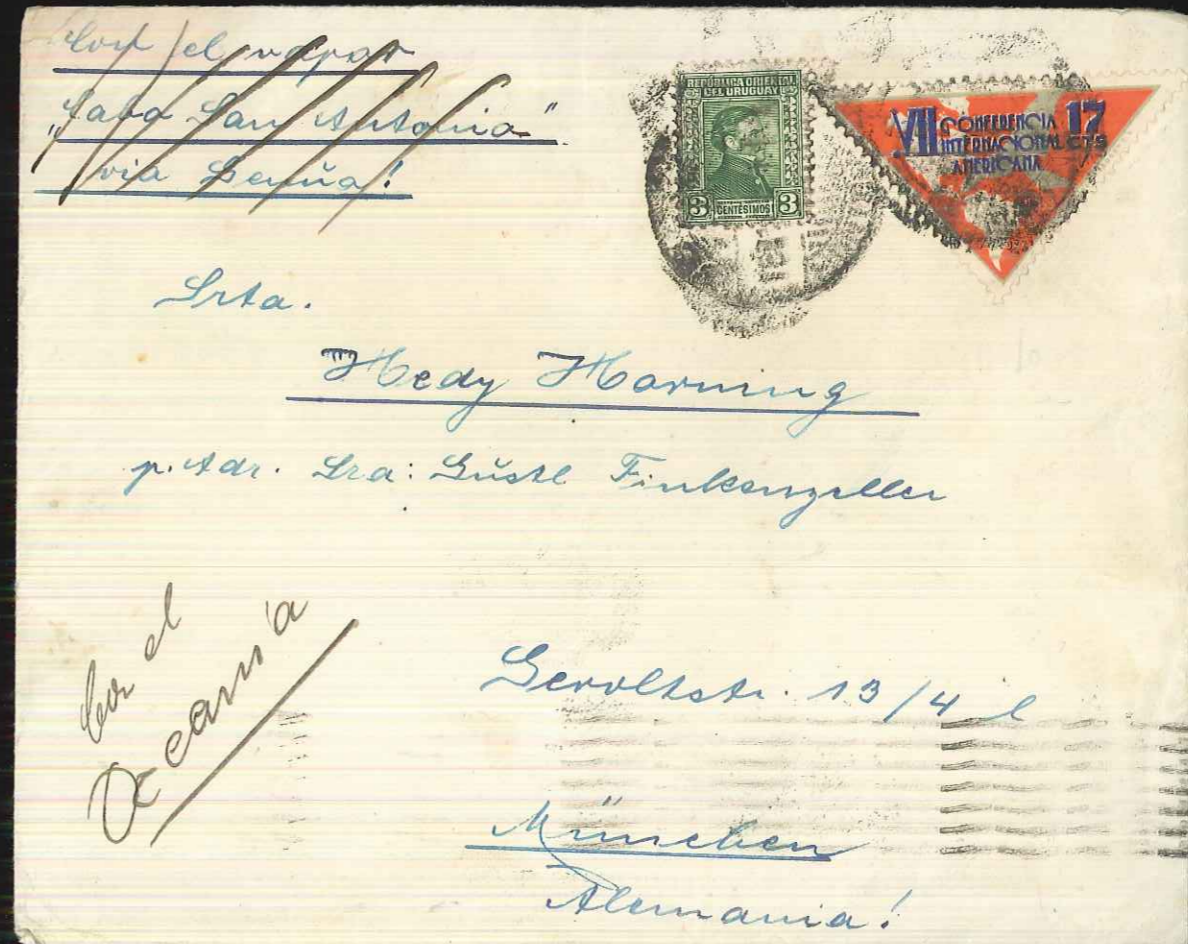 Con el vapor
"Cabo San Antonio"
via
REPÚBLICA ORIENTAL
DEL URUGUAY
3 CENTÉSIMOS 3
VII CONFERENCIA 17
INTERNACIONAL CTS
AMERICANA
Srta.
Hedy Horning
p. Adr. Sra: Gustl Finkenzeller
Con el
Oceania
13/4 l
München
Alemania!